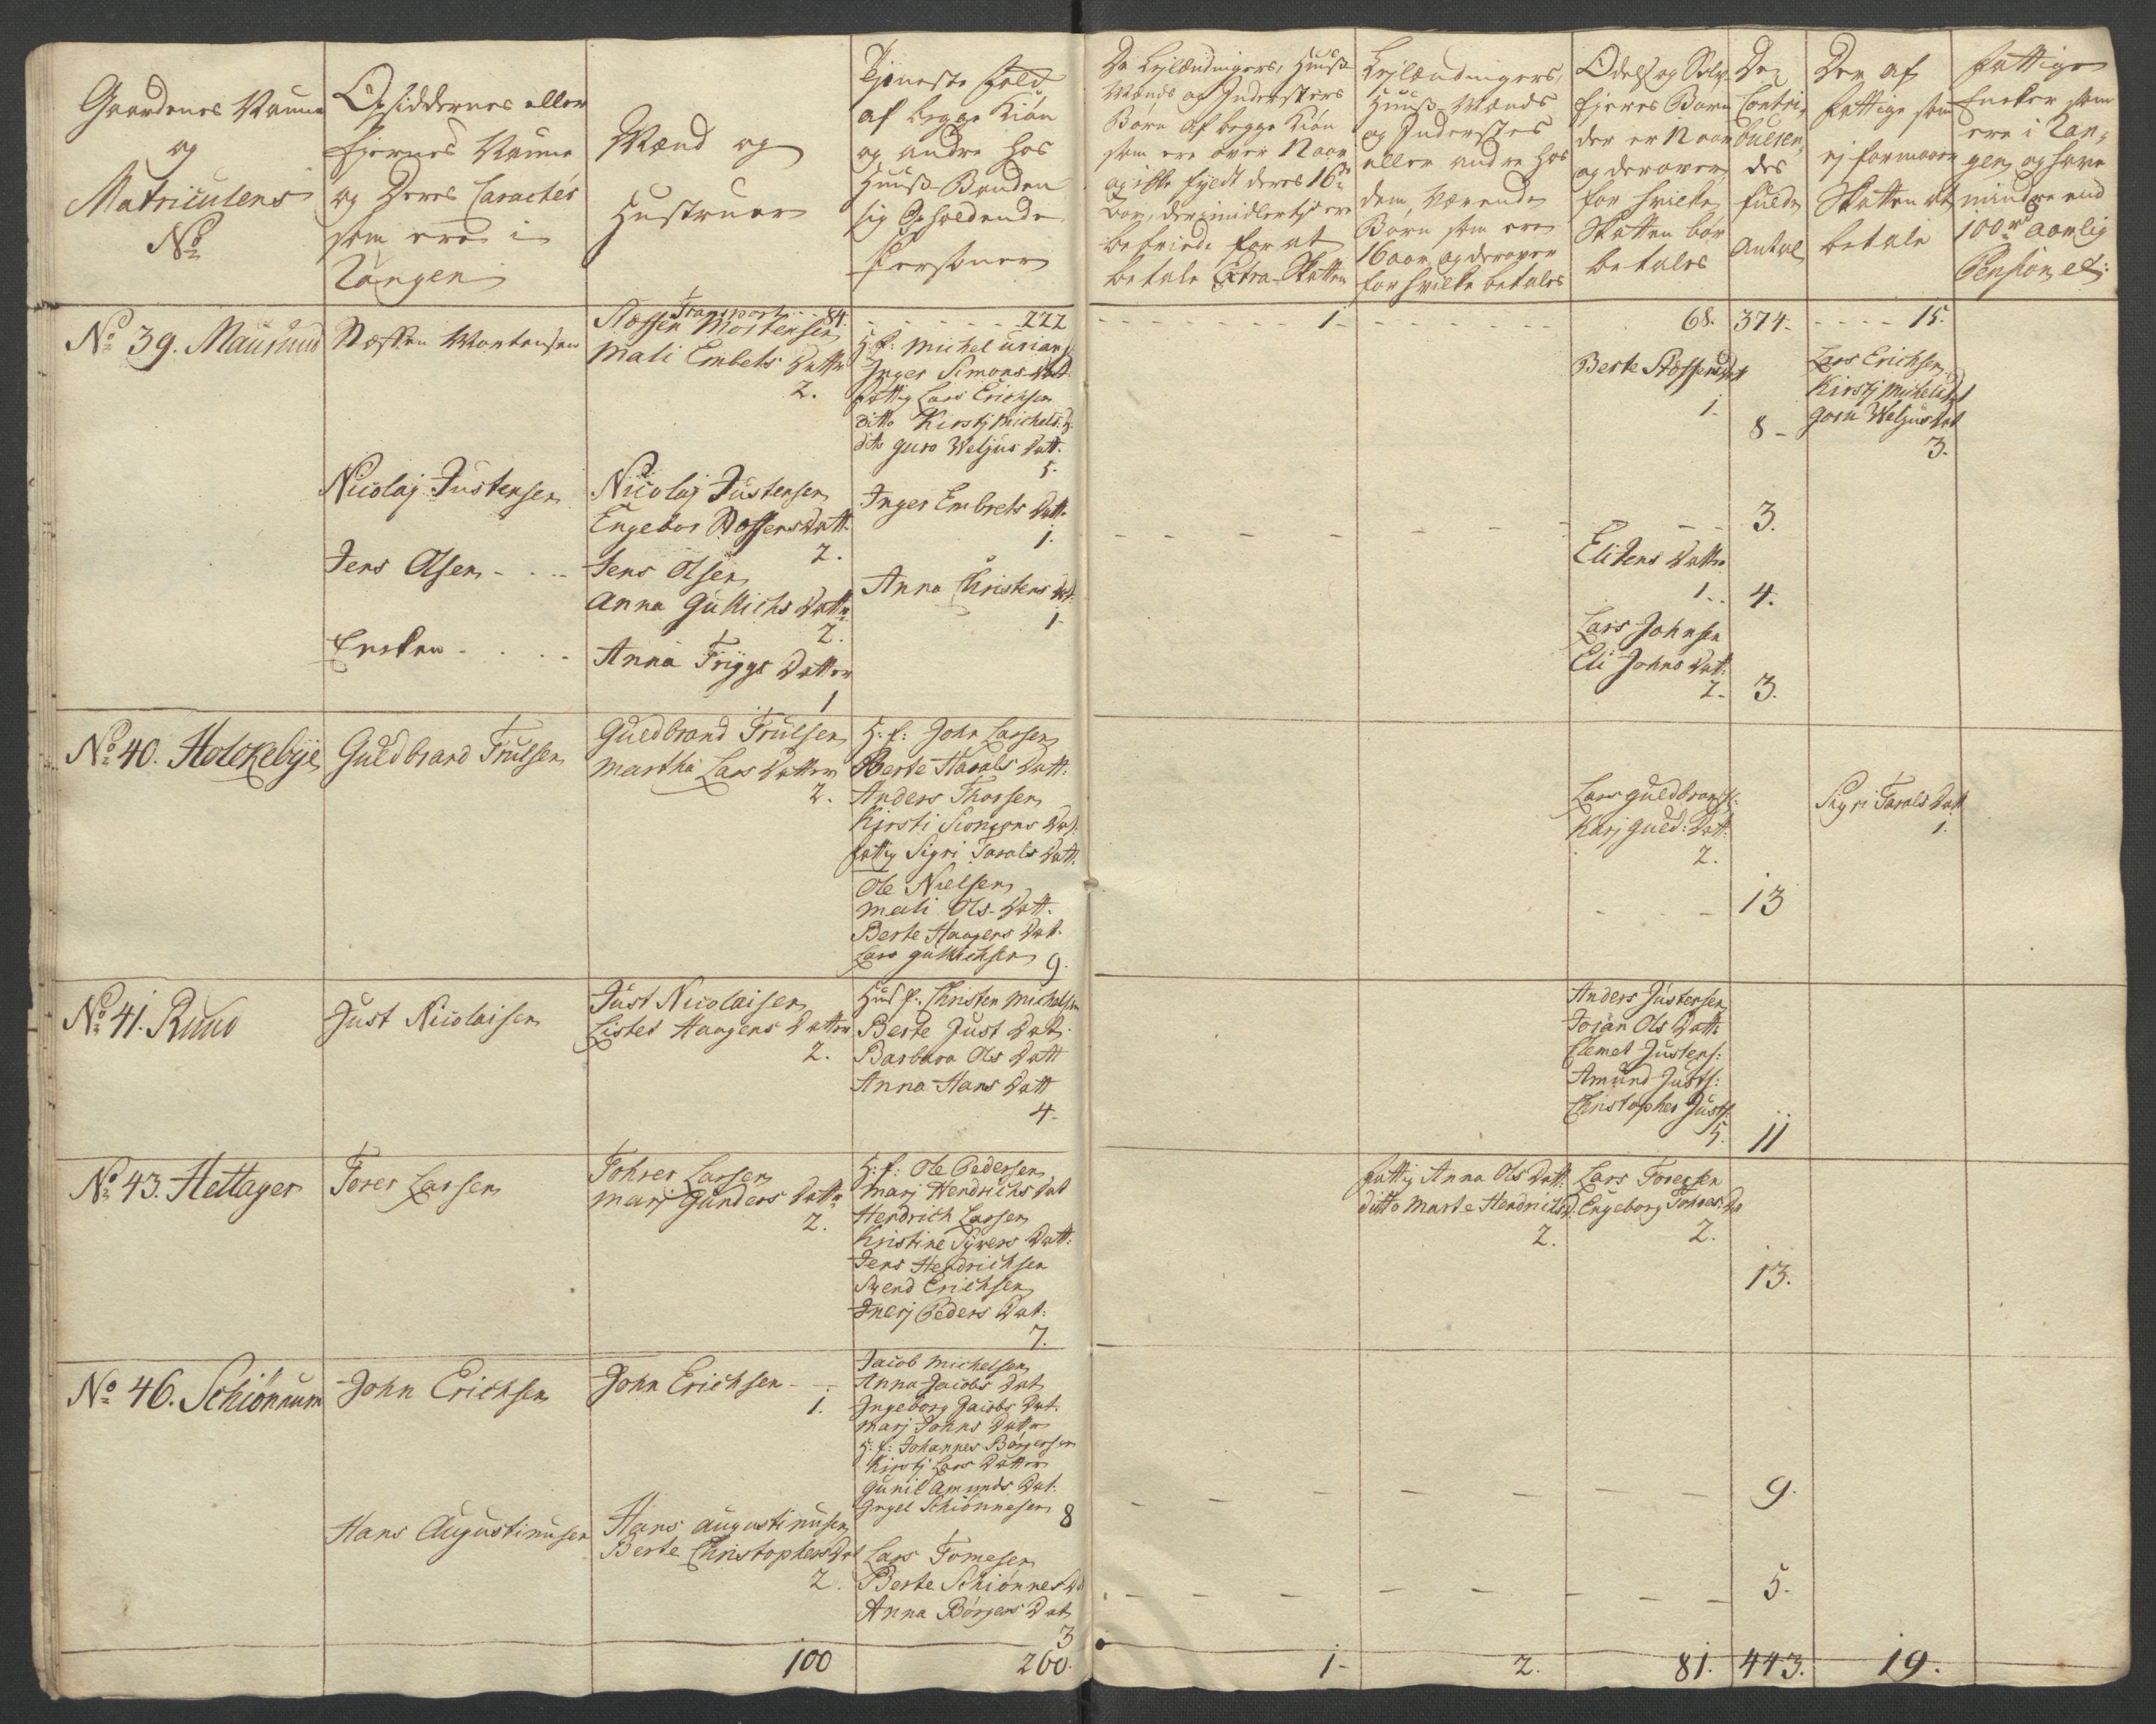 Gaardenes Naune
og
Matriculens
No
Opsiddernes eller
Ejernes Naune
og Deres Caractér
som ere i
Rangen
Mænd og
Hustruer
Tjeneste Folk
af begge Kiön
og andre hos
Huuß-Bonden
sig Opholdende
Personer
De Lejlændingers, Huuß
Mænds og Indersters
Børn af begge Kiön
som ere over 12 aar
og ikke fyldt deres 16de
Aar, der imidlertid ere
befriede for at
betale Extra-Skatten
Lejlændingers,
Huuß-Mænds
og Inderstes
eller andre hos
dem, værende
Børn som ere
16 aar og derover
for hvilke betales
Odels og Selv-
Ejeres Børn
der er 12 aar
og derover,
for hvilke
Skatten bør
betales
De
Contri-
buëren-
des
fulde
Antal
Der af
fattige som
ej formaaer
Skatten at
betale
fattige
Encker som
ere i Ran-
gen, og have
mindre end
100 rd aarlig
Pension etc:
Transport - - 84. - - - - - 222 - - - - - 1 - - - - - 68. 374. - - - - 15.
No 39. Maurund
Steffen Mortensen
Steffen Mortensen
Mali Embets Datter
2.
H: f: Michel
Inger Simons Dat
fattig Lars Erichsen
ditto Kirstj Michels D.
dito Guro Weljus Datt.
5.
Berte Steffens Dat
1.
8 -
Lars Erichsen
Kirstj Michels Dat
Goru Weljus Dat
3.
Nicolaj Justensen
Nicolaj Justensen
Engebor Steffens Datt.
2.
Inger Embrets Datt.
1.
3.
Jens Olsen - . . -
Jens Olsen
Anna Gullichs Datter
2.
Anna Christens Dat.
1.
Eli Jens Datter
1. . 4.
Encken - . . -
Anna Trygs Datter
1
Lars Johnsen
Eli Johns Dat:
2. 3.
No 40. Holckebye
Guldbrand Trulsen
Guldbrand Trulsen
Martha Lars Datter
2.
H: f: John Larsen
Berte Harals Datt.
Anders Thorsen
Kirsti Dat:
fattig Sigri Tarals Datt.
Ole Nielsen
Mali Ols Datt.
Berte Haagens Dat.
Lars Gullichsen 9.
Lars Guldbrands:
Karj Guld: Datt:
2.
13
Sigri Tarals Dat
1.
No 41. Ruud
Just Nicolaisen
Just Nicolaisen
Lisbet Haagens Datter
2.
Hus f: Christen Michelsen
Berte Just Dat.
Barbara Ols Datt
Anna Hans Datt
4.
Anders Justensen
Joran Ols Datt:
Clemet Justens:
Amund Justs:
Christopher Justs:
5. 11
No 43. Hellager
Torer Larsen
Tohrer Larsen
Marj Gunders Datter
2.
H: f: Ole Pedersen
Marj Hendrichs Dat
Hendrich Larsen
Kristine Syvers Datt:
Jens Hendrichsen
Svend Erichsen
Inerj Peders Dat:
7.
fattig Anna Ols Datt:
ditto Marte Hendrichs D.
2.
Lars Toresen
Engeborg Tohres: Da
2.
13.
No 46. Schiönnum
John Erichsen
John Erichsen - . -
1.
Jacob Michelsen
Anna Jacobs Dat
Ingeborg Jacobs Dat.
Marj Johns Datter
H: f: Johannes Børgersen
Kirstj Lars Datter
Gunil Amunds Dat.
Ingel Schiönnesen 8
9.
Hans Augustinusen
Hans Augustinusen
Berte Christophers Dat
2.
Lars Tomesen
Berte Schiönnes D
Anna Börgers Dat
3
5.
100 260. 1 - 2. 81. 443. 19.